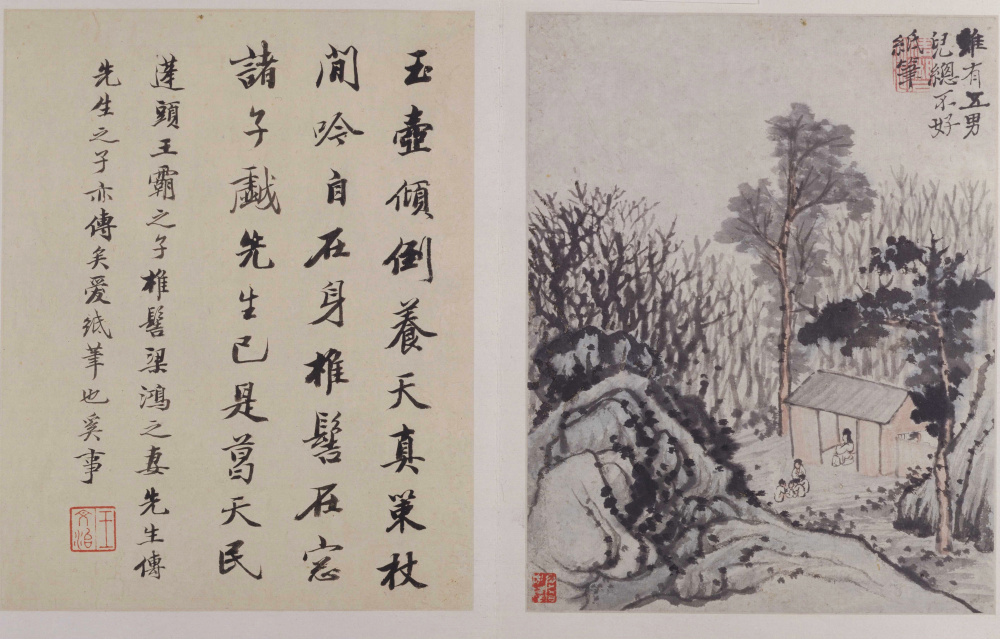 雖有五男
兒總不好
紙筆
玉壺傾倒養天真策杖
閒吟自在身椎髻在窓
諸子戱先生已是葛天民
蓬頭王霸之子椎髻梁鴻之妻先生傳
先生之子亦傳矣愛紙筆也奚事
王文治